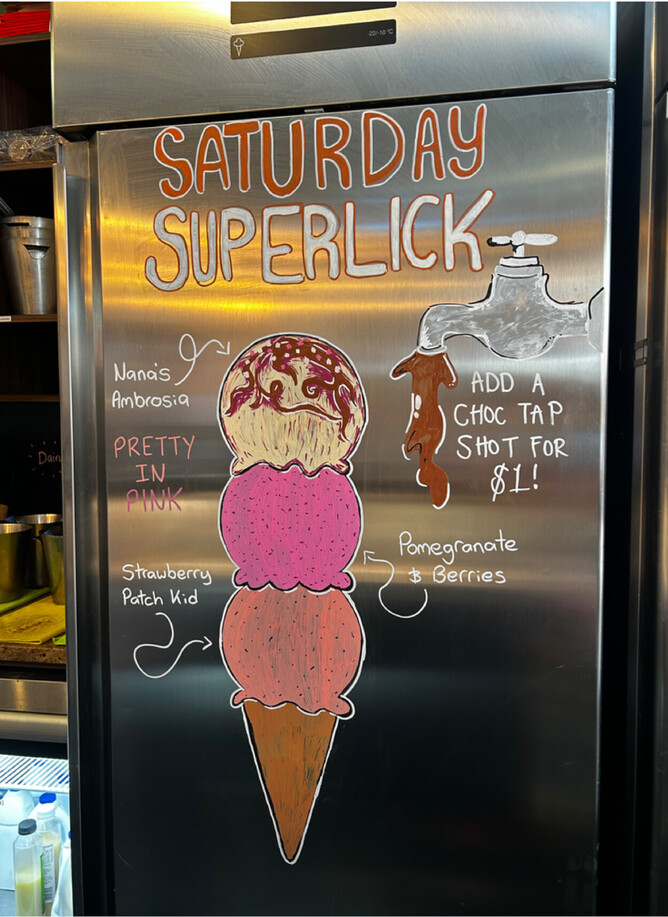 -22/-10 °C
SATURDAY
SUPERLICK
Nana's
Ambrosia
PRETTY
IN
PINK
ADD A
CHOC TAP
SHOT FOR
$1!
Pomegranate
& Berries
Strawberry
Patch Kid